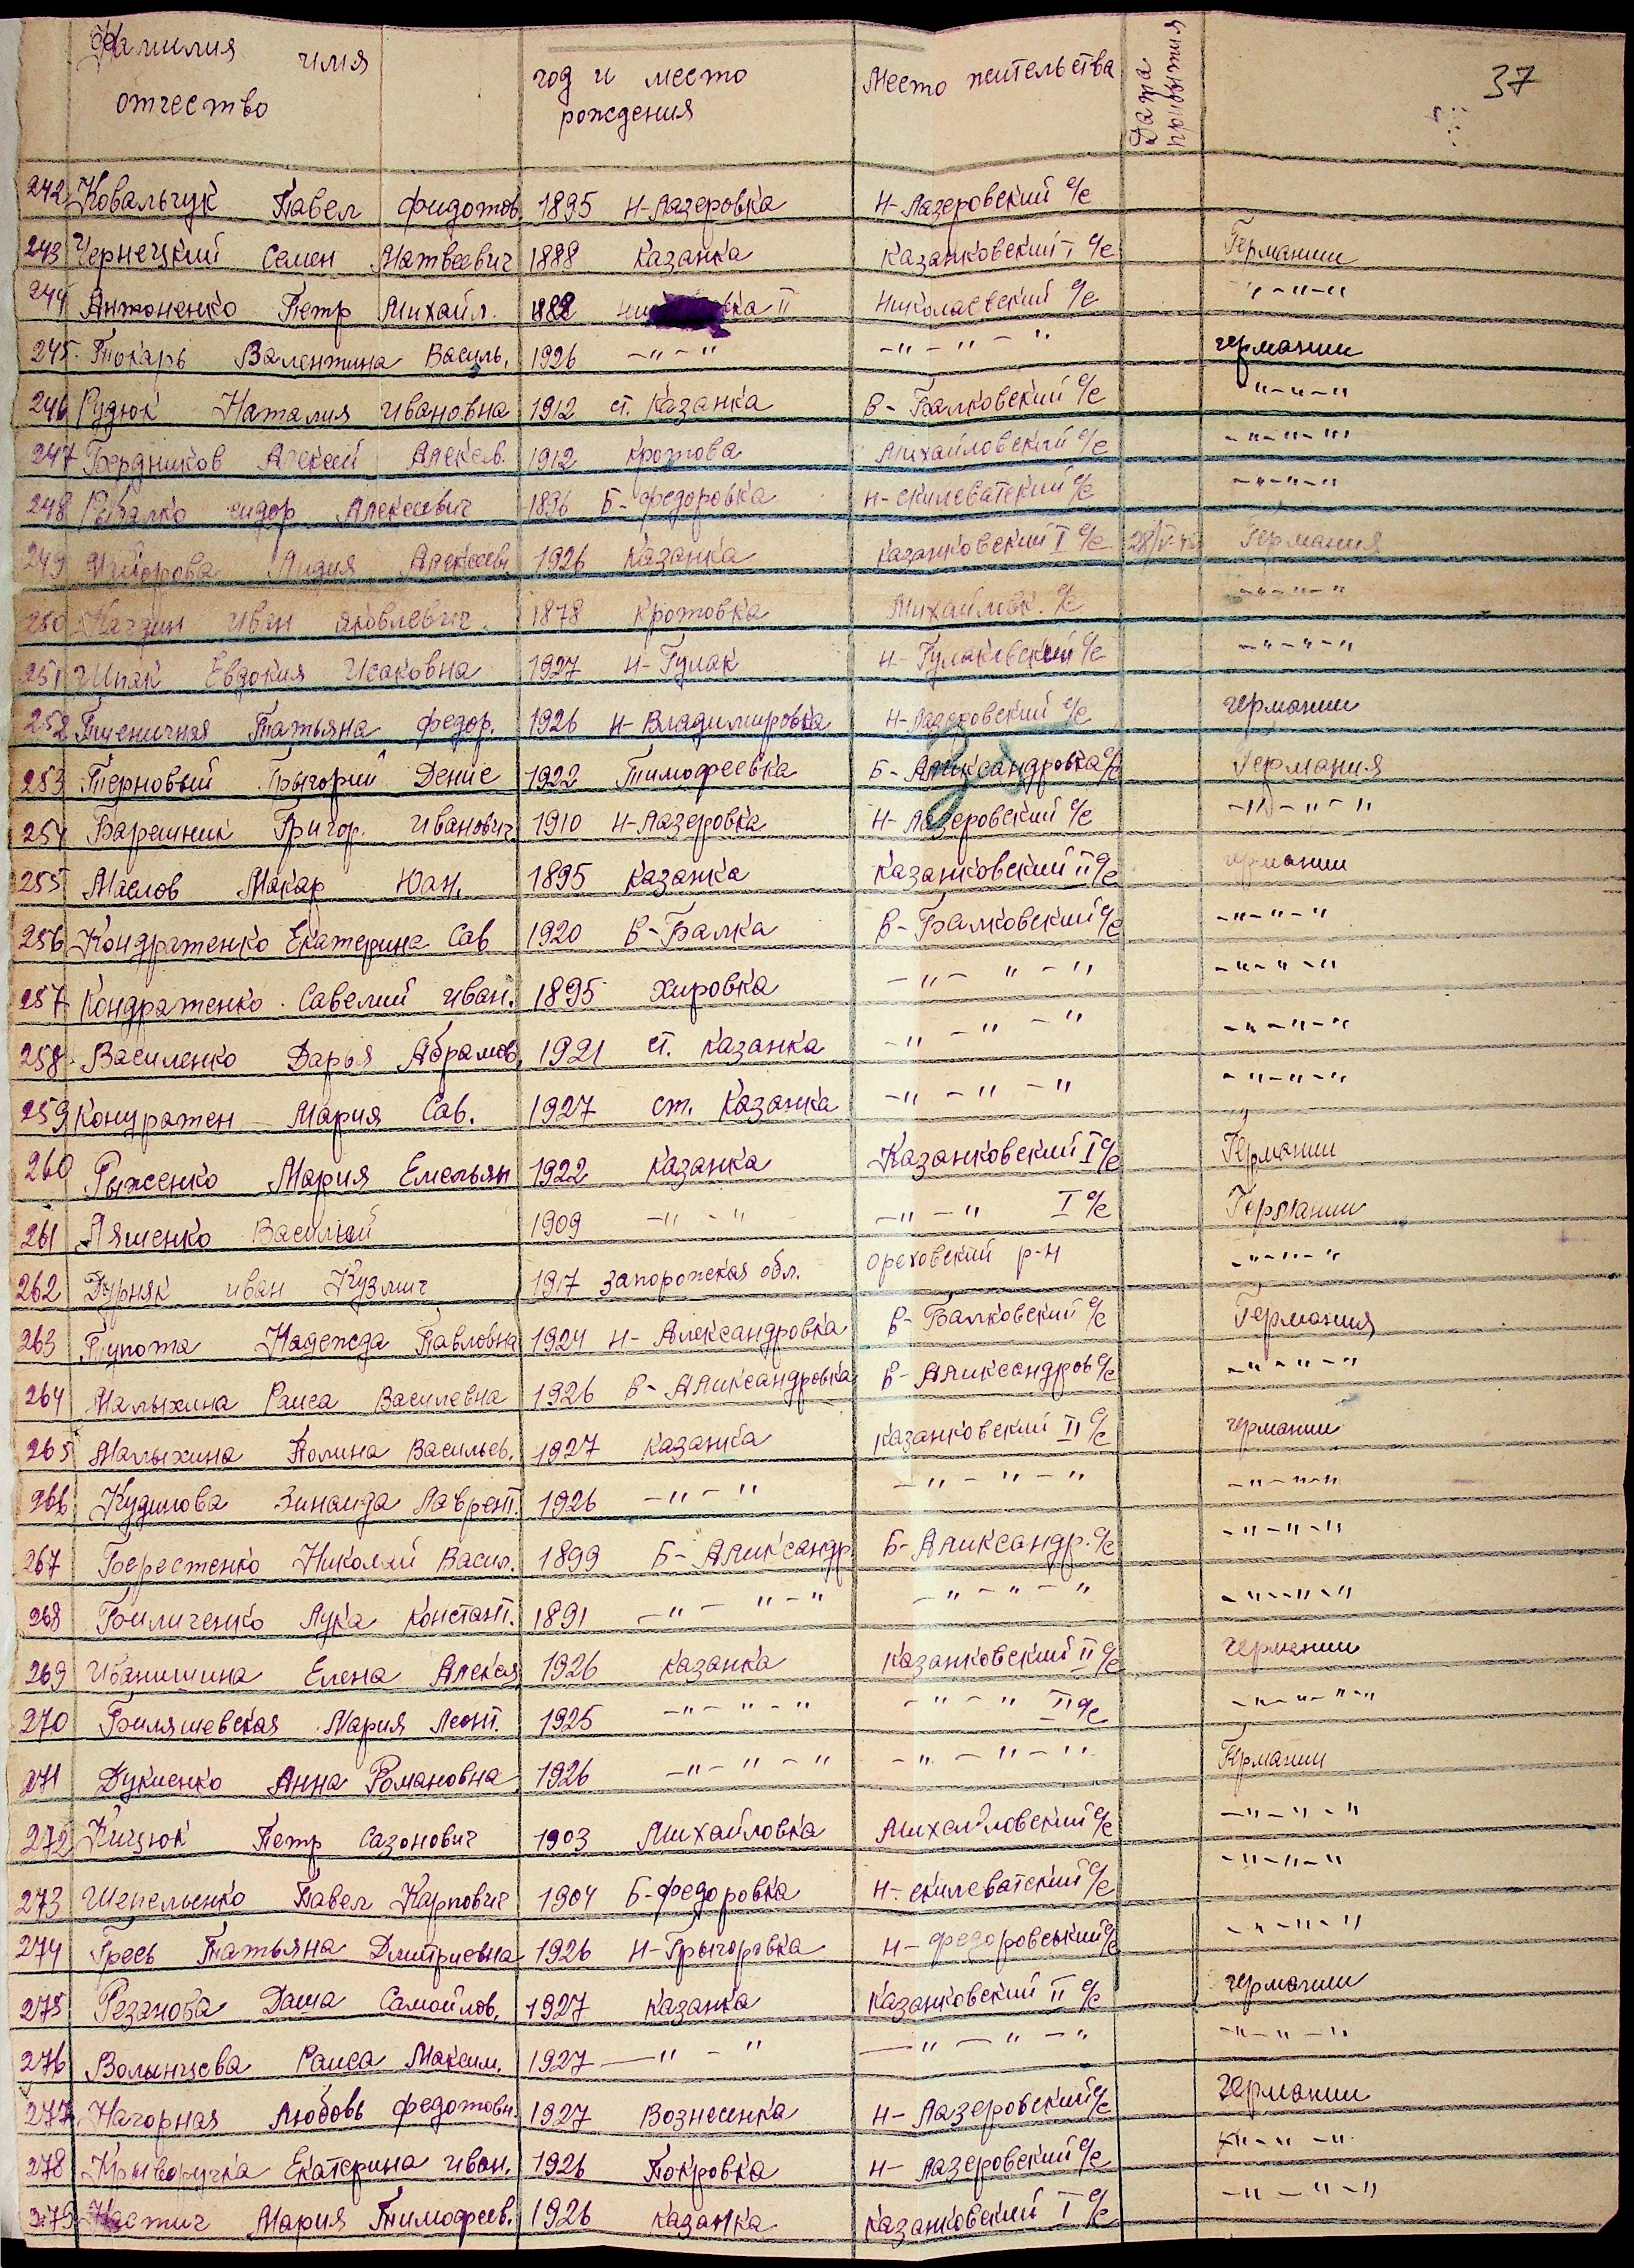 Фамилия имя отчество год и место рождения Место жительства Дата прибытия 37
242 Ковальчук Павел Фидотов. 1895 Н-Лазеровка Н-Лазеровский с/с
243 Чернецкий Семен Матвеевич 1888 Казанка Казанковский I с/с Германии
244 Антоненко Петр Михайл. 1882 II Николаевский с/с -"-"-"
245. Токарь Валентина Василь. 1926 -"-" -"-"-" германии
246 Рудюк Наталия Ивановна 1912 ст. Казанка В-Балковский с/с "-"-"
247 Бердников Алексей Алексев. 1912 Кротова Михайловский с/с -"-"-"
248 Рыбалко Сидор Алексеевич 1896 Б-Федоровка Н-Скилеватский с/с -"-"-"
249 Лидия Алексеевн 1926 Казанка Казанковский I с/с Германия
250 Иван Яковлевич. 1878 Кротовка Михайловк. с/с -"-"-"
251 Шпак Евдокия Исаковна 1927 Н-Гулак Н-Гулаковский с/с -"-"-"
252 Пшеничная Татьяна Федор. 1926 Н-Владимировка Н-Лазеровский с/с германии
253 Терновый Грыгорий Денис 1922 Тимофеевка Б-Аликсандровка с/с Германия
254 Барашник Григор. Иванович 1910 Н-Лазеровка Н-Лазеровский с/с -"-"-"
255 Маслов Макар Юан. 1895 Казанка Казанковский II с/с германии
256 Кондратенко Екатерина Сав 1920 В-Балка В-Балковский с/с -"-"-"
257 Кондратенко Савелий Иван. 1895 Хировка -"-"-" -"-"-"
258. Василенко Дарья Абрамов. 1921 ст. Казанка -"-"-" -"-"-"
259 Кондратен Мария Сав. 1927 ст. Казанка -"-"-" -"-"-"
260 Рыженко Мария Емельян 1922 Казанка Казанковский I с/с Германии
261 Ляшенко Василий 1909 -"-" -"-" I с/с Германии
262 Дурняк Иван Кузмич 1917 Запорожская обл. Ореховский р-н -"-"-"
263 Тупота Надежда Павловна 1924 Н-Александровка В-Балковский с/с Германия
264 Малыхина Раиса Василевна 1926 В-Аликсандровка В-Аликсандров с/с -"-"-"
265 Малыхина Полина Васильев. 1927 Казанка Казанковский II с/с германии
266 Кудинова Зинаида Лаврент. 1926 -"-" -"-"-" -"-"-"
267 Берестенко Николай Васил. 1899 Б-Аликсандр. Б-Аликсандр. с/с -"-"-"
268 Биличенко Лука Констант. 1891 -"-"-" -"-"-" -"-"-"
269 Иванишина Елена Алекся 1926 Казанка Казанковский II с/с германии
270 Биляшевская Мария Леонт. 1925 -"-"-" -"-" II с/с -"-"-"-"
271 Дукиенко Анна Романовна 1926 -"-"-" -"-"-" Германии
272 Кицюк Петр Сазонович 1903 Михайловка Михайловский с/с -"-"-"
273 Шепельенко Павел Карпович 1904 Б-Федоровка Н-Скилеватский с/с -"-"-"
274 Гресь Татьяна Дмитриевна 1926 Н-Грыгоровка Н-Федоровський с/с -"-"-"
275 Резанова Даша Самойлов. 1927 Казанка Казанковский II с/с германии
276 Волынцева Раиса Максим. 1927 -"-" -"-"-" -"-"-"
277. Нагорная Любовь Федотовн. 1927 Вознесенка Н-Лазеровский с/с Германии
278 Крыворучка Екатерина Иван. 1926 Покровка Н-Лазеровский с/с "-"-"
279 Мария Тимофеев. 1926 Казанка Казанковский I с/с -"-"-"